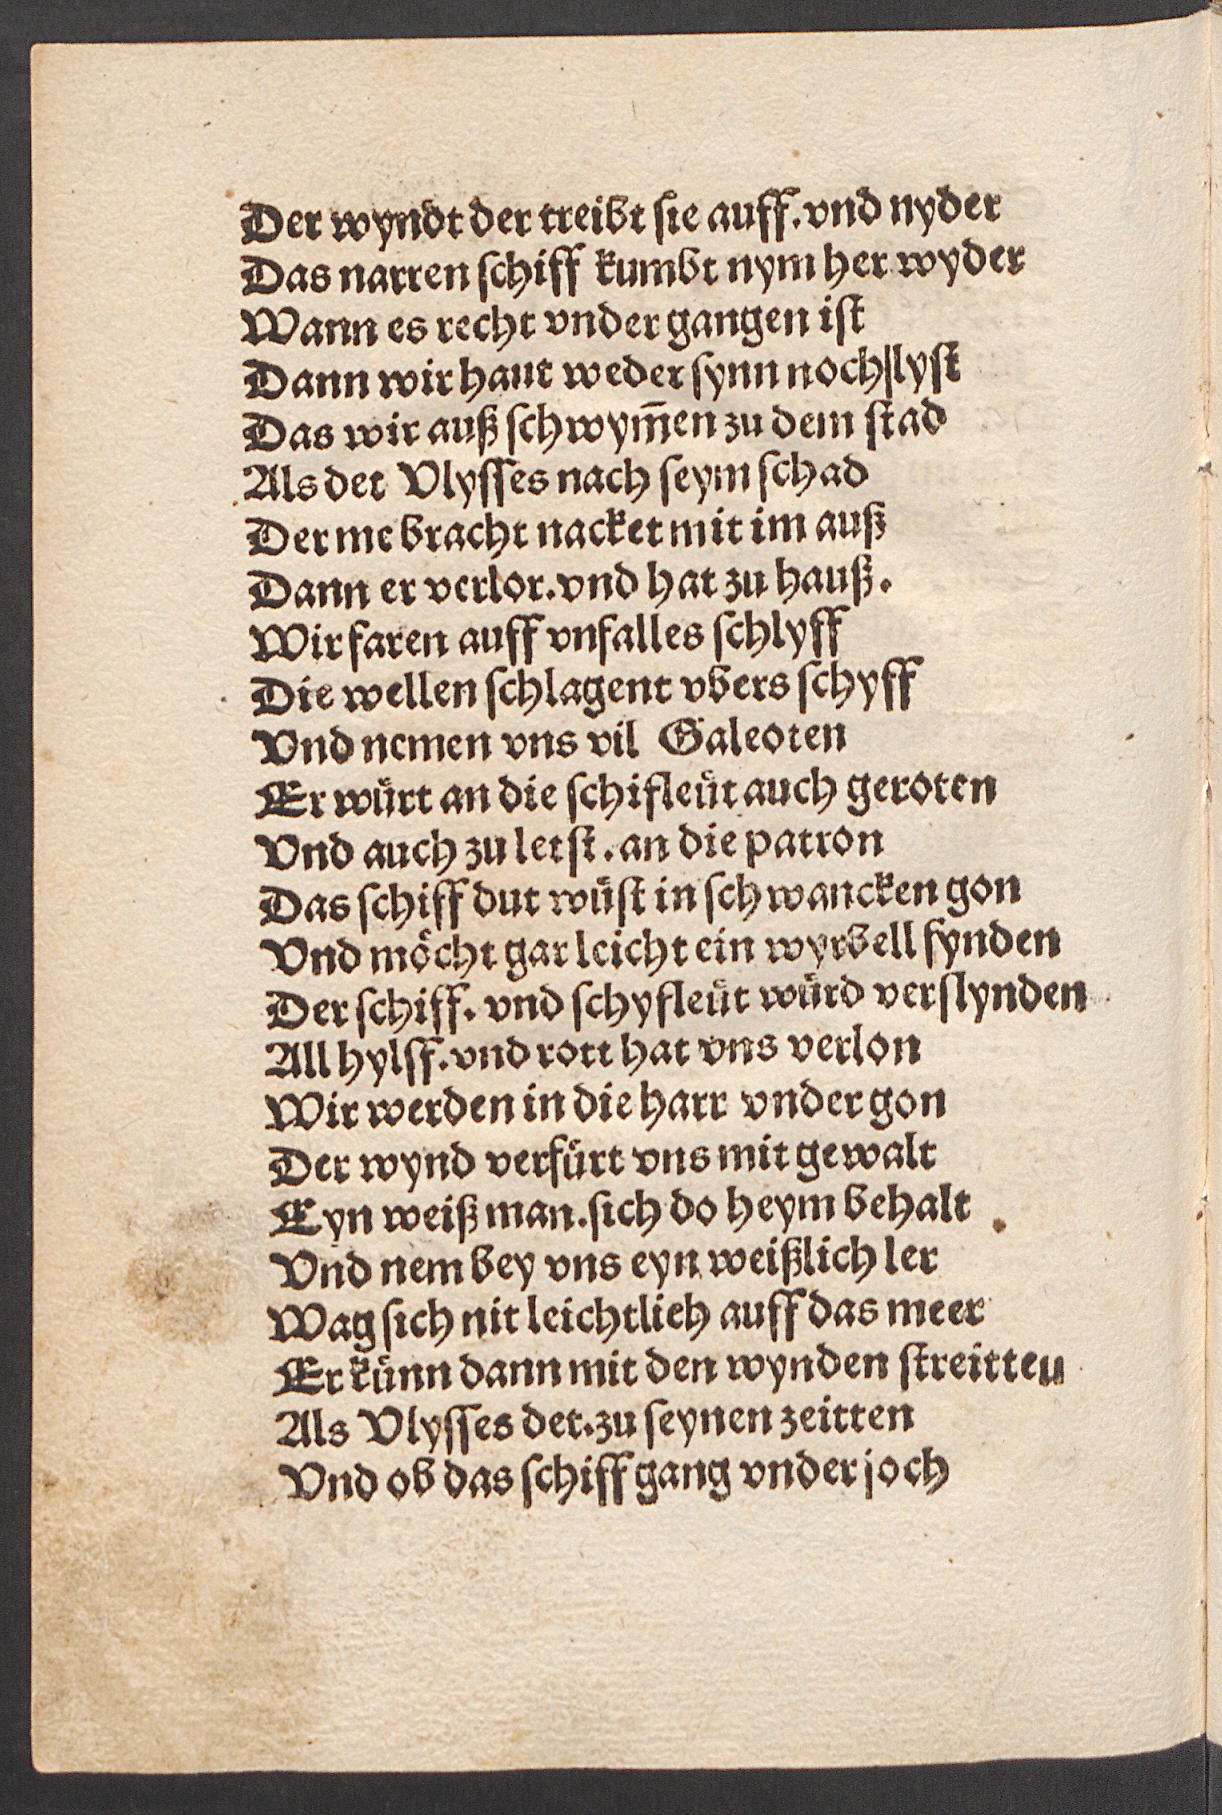 Der wyndt der treibt sie auff. vnd nyder
Das narren schiff kumbt nym her wyder
Wann es recht vnder gangen ist
Dann wir haut weder synn noch lyst
Das wir auß schwym̄en zu dem stad
Als det Vlysses nach seym schad
Der me bracht nacket mit im auß
Dann er verlor. vnd hat zu hauß.
Wir faren auff vnfalles schlyff
Die wellen schlagent vbers schyff
Vnd nemen vns vil Galeoten
Er würt an die schifleüt auch geroten
Vnd auch zu letst. an die patron
Das schiff dut wüst in schwancken gon
Vnd möcht gar leicht ein wyrbell fynden
Der schiff. vnd schyfleüt würd verslynden
All hylff. vnd rott hat vns verlon
Wir werden in die harr vnder gon
Der wynd verfürt vns mit gewalt
Eyn weiß man. sich do heym behalt
Vnd nem bey vns eyn weißlich ler
Wag sich nit leichtlich auff das meer
Er künn dann mit den wynden streitteu
Als Vlysses det. zu seynen zeitten
Vnd ob das schiff gang vnder joch